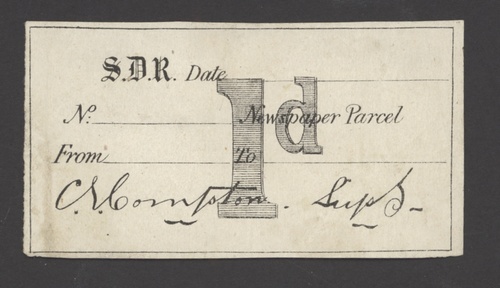 S.D.R. Date
No: Newspaper Parcel
From To
1d
C. S. Compton. Supt.